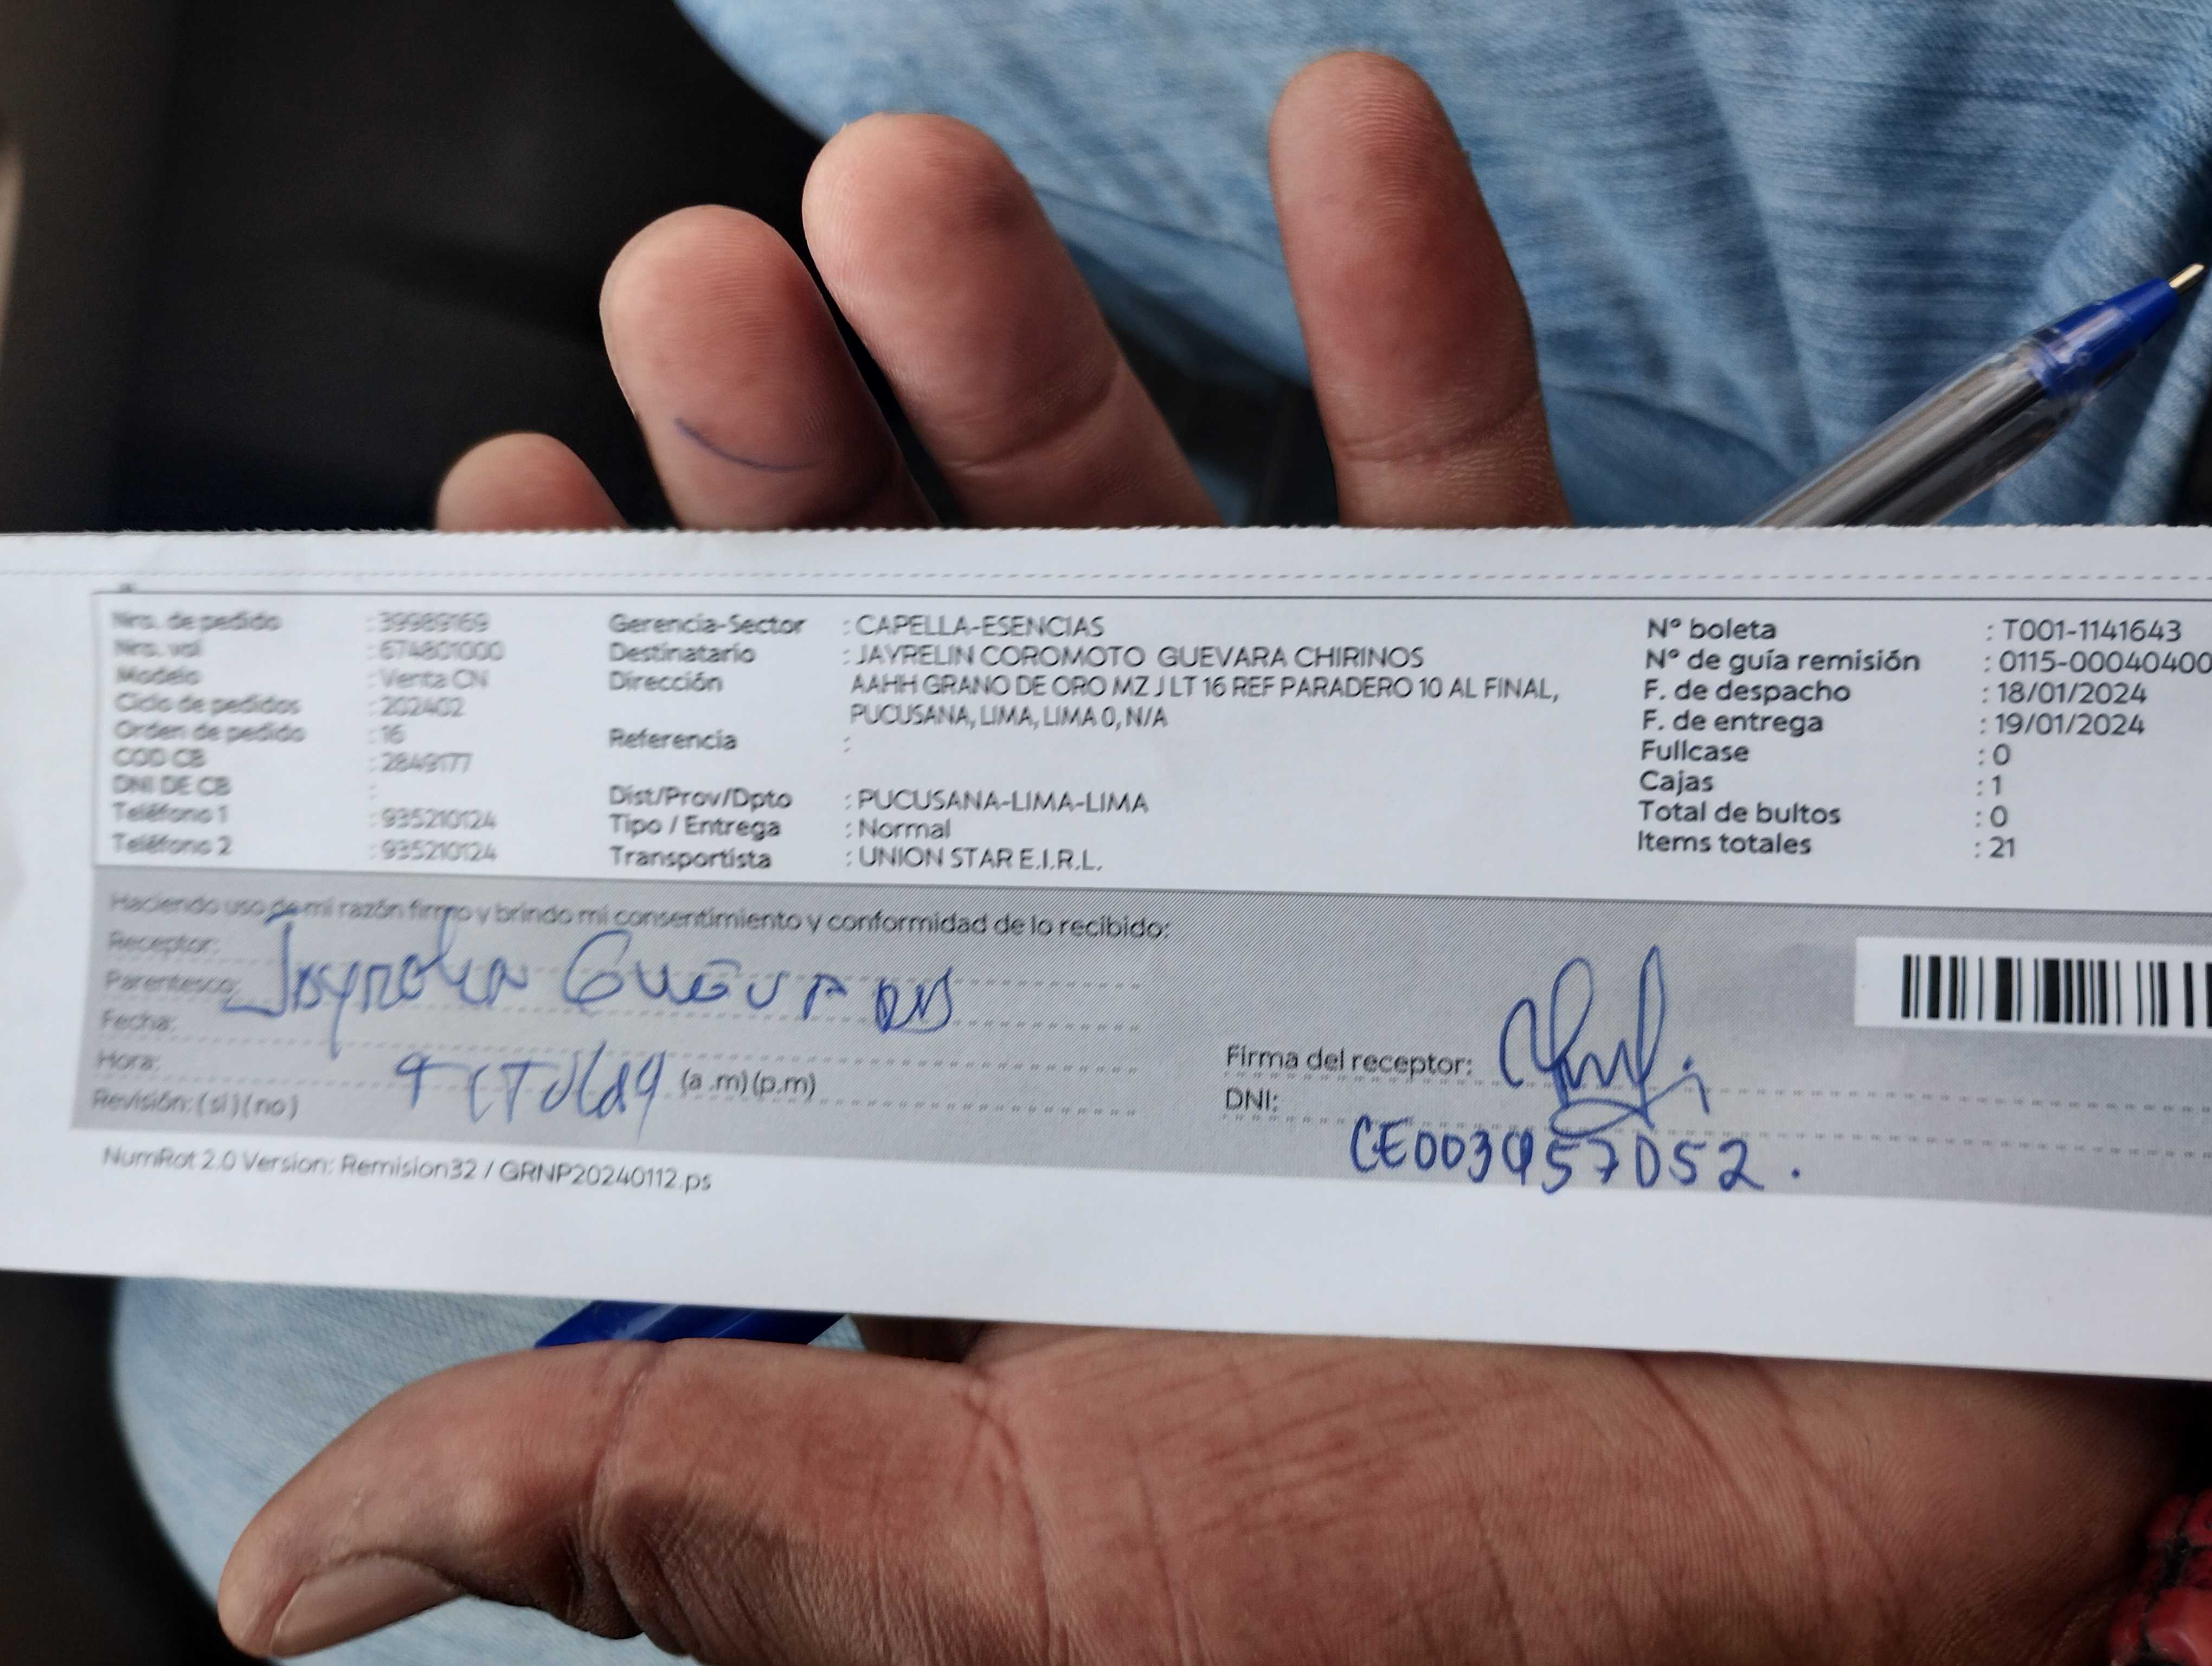 Nrs. de pedido : 39989169
Nrs. vol : 674801000
Modelo : Venta CN
Ciclo de pedidos : 202402
Orden de pedido : 16
COD CB : 2849177
DNI DE CB :
Teléfono 1 : 935210124
Teléfono 2 : 935210124
Gerencia-Sector : CAPELLA-ESENCIAS
Destinatario : JAYRELIN COROMOTO GUEVARA CHIRINOS
Dirección AAHH GRANO DE ORO MZ J LT 16 REF PARADERO 10 AL FINAL,
PUCUSANA, LIMA, LIMA 0, N/A
Referencia :
Dist/Prov/Dpto : PUCUSANA-LIMA-LIMA
Tipo / Entrega : Normal
Transportista : UNION STAR E.I.R.L.
Nº boleta : T001-1141643
Nº de guía remisión : 0115-00040400
F. de despacho : 18/01/2024
F. de entrega : 19/01/2024
Fullcase : 0
Cajas : 1
Total de bultos : 0
Items totales : 21
Haciendo uso de mi razón firmo y brindo mi consentimiento y conformidad de lo recibido:
Receptor:
Parentesco:
Fecha:
Hora: (a.m)(p.m)
Revisión: (si)(no)
Firma del receptor:
DNI:
CE003457052.
NumRot 2.0 Version: Remision32 / GRNP20240112.ps